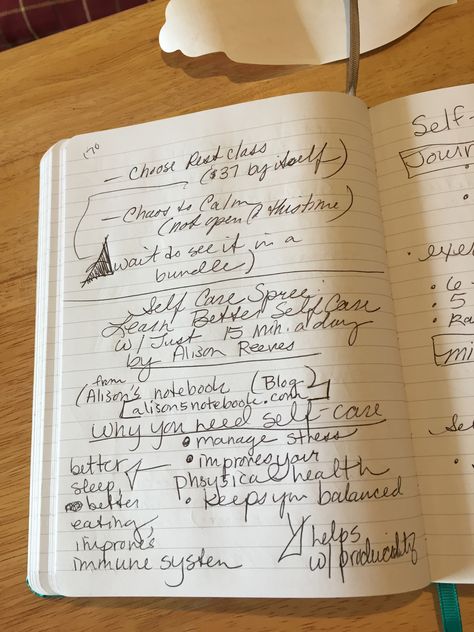 170
— Choose Rest class
($37 by itself)
— Chaos to Calm
(not open @ this time)
wait to see it in a
bundle)
Self Care Spree:
Learn Better Self Care
w/ Just 15 min. a day
by Alison Reeves
(from
Alison's notebook (Blog)
alisonsnotebook.com
Why you need self-care
• manage stress
• improves your
physical health
• keeps you balanced
better
sleep
better
eating
improves
immune system
helps
w/
Self-
Journ
• exer
• 6-
• 5
• Ra
mi
Se